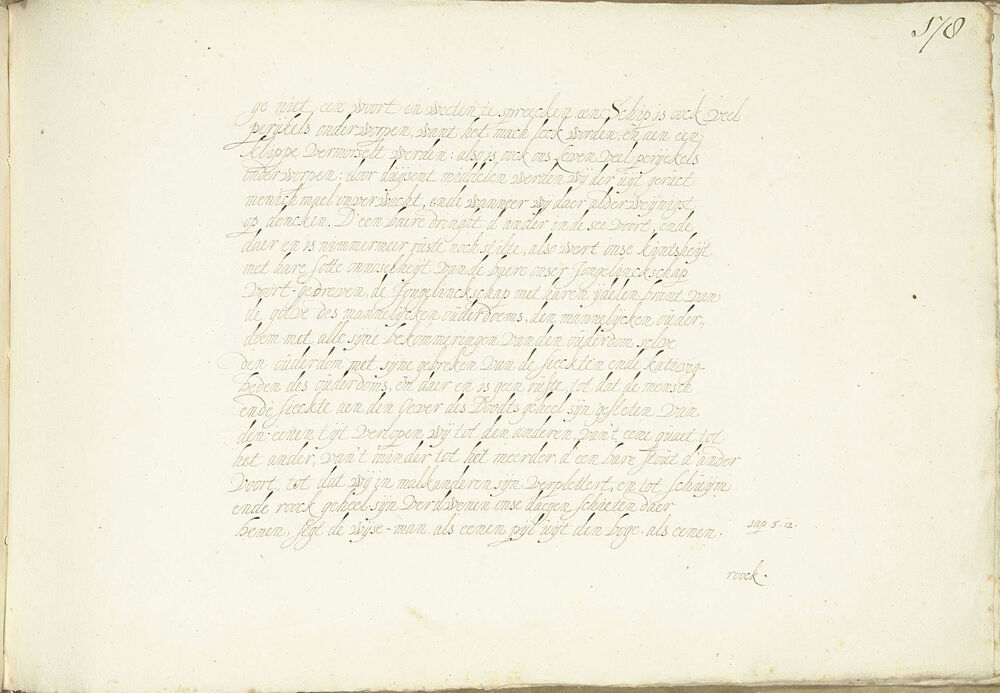 178
ge niet een woort en weeten te spreecken een Schip is ock veel
perijkels onderworpen, want het mach leck worden, en aen een
klippe vermorselt werden: also is ock ons leven veel perijckels
onderworpen: door duijsent middelen werden wij der uijt geruct
menich mael onverwacht, ende wanneer wij daer alderweijnigst
op dencken. D'een baere dringht d'ander in de see voort, ende
daer en is nimmermeer ruste noch stilte, also wert onse kijntsheijt
met hare sotte onnoselheijt van de baere onser Jongelijnckschap
voort-gedreven, de Jongelijnckschap met haren ijdelen brant van
de golve des mannelijcken ouderdoems, den mannelijcken ouder„
doem met alle sijne bekommeringen van den ouderdom selve
den ouderdom met sijne gebreken van de sieckten ende kativig-
heden des ouderdoms, en daer en is geen ruste, tot dat de mensch
ende sieckte aen den Oever des Doodts geheel sijn gesleten. van
den eenen tijt verlopen wij tot den anderen, van't eene quaet tot
het ander, van't minder tot het meerder, d'een bare stout d'ander
voort, tot dat wij in malkanderen sijn verplettert, en tot schuijm
ende roock geheel sijn verdwenen onse daegen schieten daer
henen, segt de wijse-man, als eenen pijl uijt den boge, als eenen.
sap 5. 12.
roock.